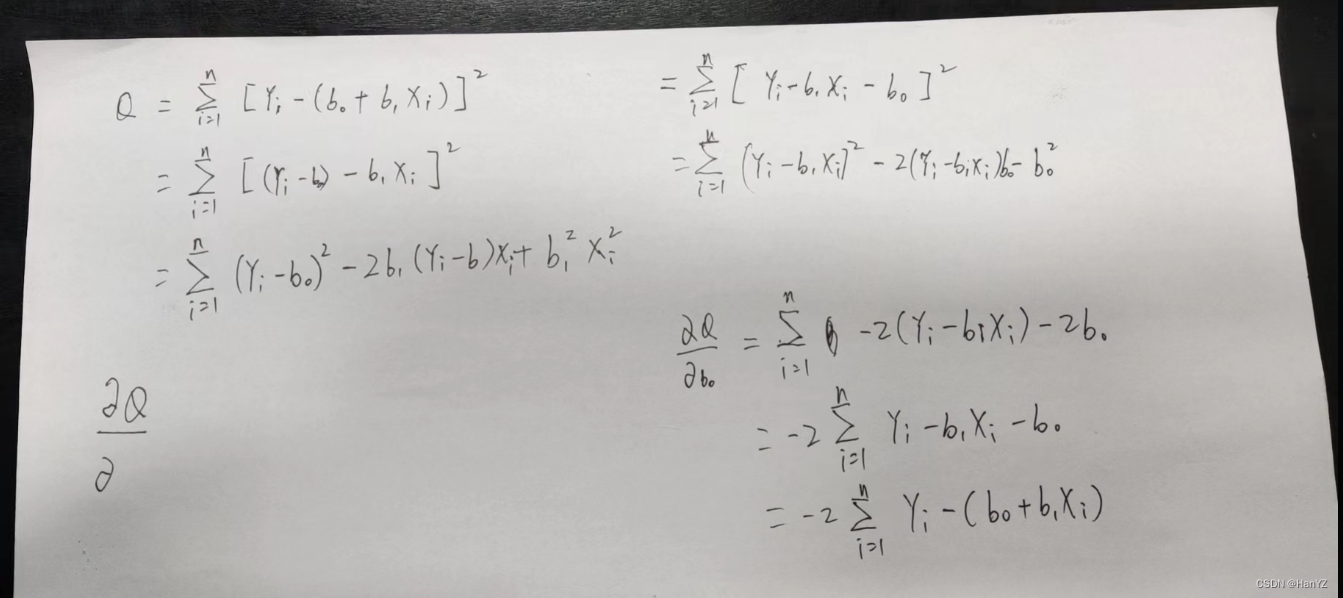 Q = \sum_{i=1}^{n} [Y_i - (b_0 + b_1 X_i)]^2
= \sum_{i=1}^{n} [(Y_i - b) - b_1 X_i]^2
= \sum_{i=1}^{n} (Y_i - b_0)^2 - 2b_1 (Y_i - b) X_i + b_1^2 X_i^2
\frac{∂Q}{∂}
= \sum_{i=1}^{n} [Y_i - b_1 X_i - b_0]^2
= \sum_{i=1}^{n} (Y_i - b_1 X_i)^2 - 2(Y_i - b_1 x_i) b_0 - b_0^2
\frac{∂Q}{∂b_0} = \sum_{i=1}^{n} -2(Y_i - b_1 X_i) - 2b_0
= -2 \sum_{i=1}^{n} Y_i - b_1 X_i - b_0
= -2 \sum_{i=1}^{n} Y_i - (b_0 + b_1 X_i)
CSDN @HanYZ